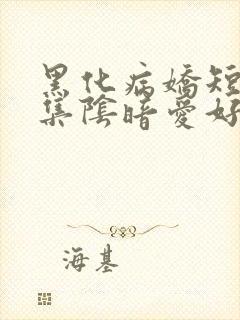 黑化病嬌短
集陰暗愛好
海基